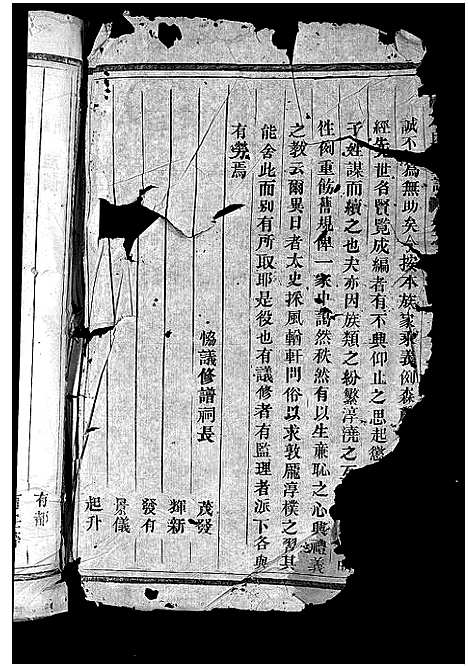 誠不為無助矣今按本族家乘義例森
經先世各賢覽成編者有不興仰止之思起懲
子姓謀而續之也夫亦因族類之紛繁淳澆之
性例重飭舊規俾一家中藹然秩然有以生廉恥之心興禮義
之教云爾異日者太史採風輶軒問俗以求敦龐淳樸之習其
能舍此而別有所取耶是役也有議修者有監理者派下各與
有勞焉
恊議修譜祠長
茂發
輝新
發有
景儀
起升
有都